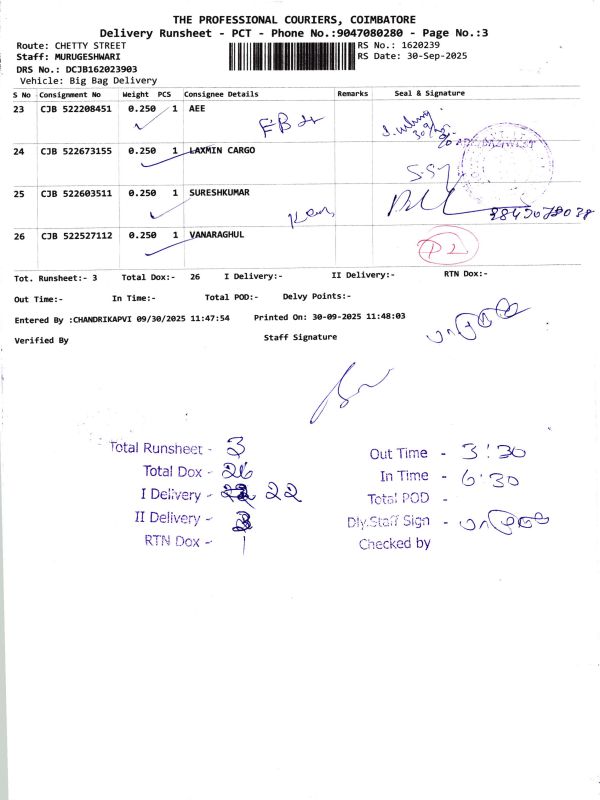 THE PROFESSIONAL COURIERS, COIMBATORE
Delivery Runsheet - PCT - Phone No.:9047080280 - Page No.:3
Route: CHETTY STREET
RS No.: 1620239
Staff: MURUGESHWARI
RS Date: 30-Sep-2025
DRS No.: DCJB162023903
Vehicle: Big Bag Delivery
S No Consignment No Weight PCS Consignee Details Remarks Seal & Signature
23 CJB 522208451 0.250 1 AEE
24 CJB 522673155 0.250 1 LAXMIN CARGO
25 CJB 522603511 0.250 1 SURESHKUMAR
26 CJB 522527112 0.250 1 VANARAGHUL
Tot. Runsheet:- 3 Total Dox:- 26 I Delivery:- II Delivery:- RTN Dox:-
Out Time:- In Time:- Total POD:- Delvy Points:-
Entered By :CHANDRIKAPVI 09/30/2025 11:47:54 Printed On: 30-09-2025 11:48:03
Verified By Staff Signature
Total Runsheet - 3
Total Dox - 26
I Delivery - 22
II Delivery - 3
RTN Dox - 1
Out Time - 3:30
In Time - 6:30
Total POD -
Dly.Staff Sign -
Checked by